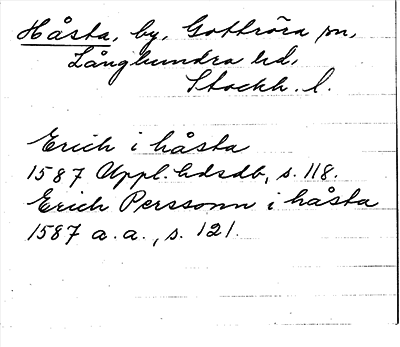 Håsta, by, Gottröra sn,
Långhundra hd,
Stockh. l.
Erich i håsta
1587 Uppl. hdsdb, s. 118.
Erich Perssonn i håsta
1587 a. a., s. 121